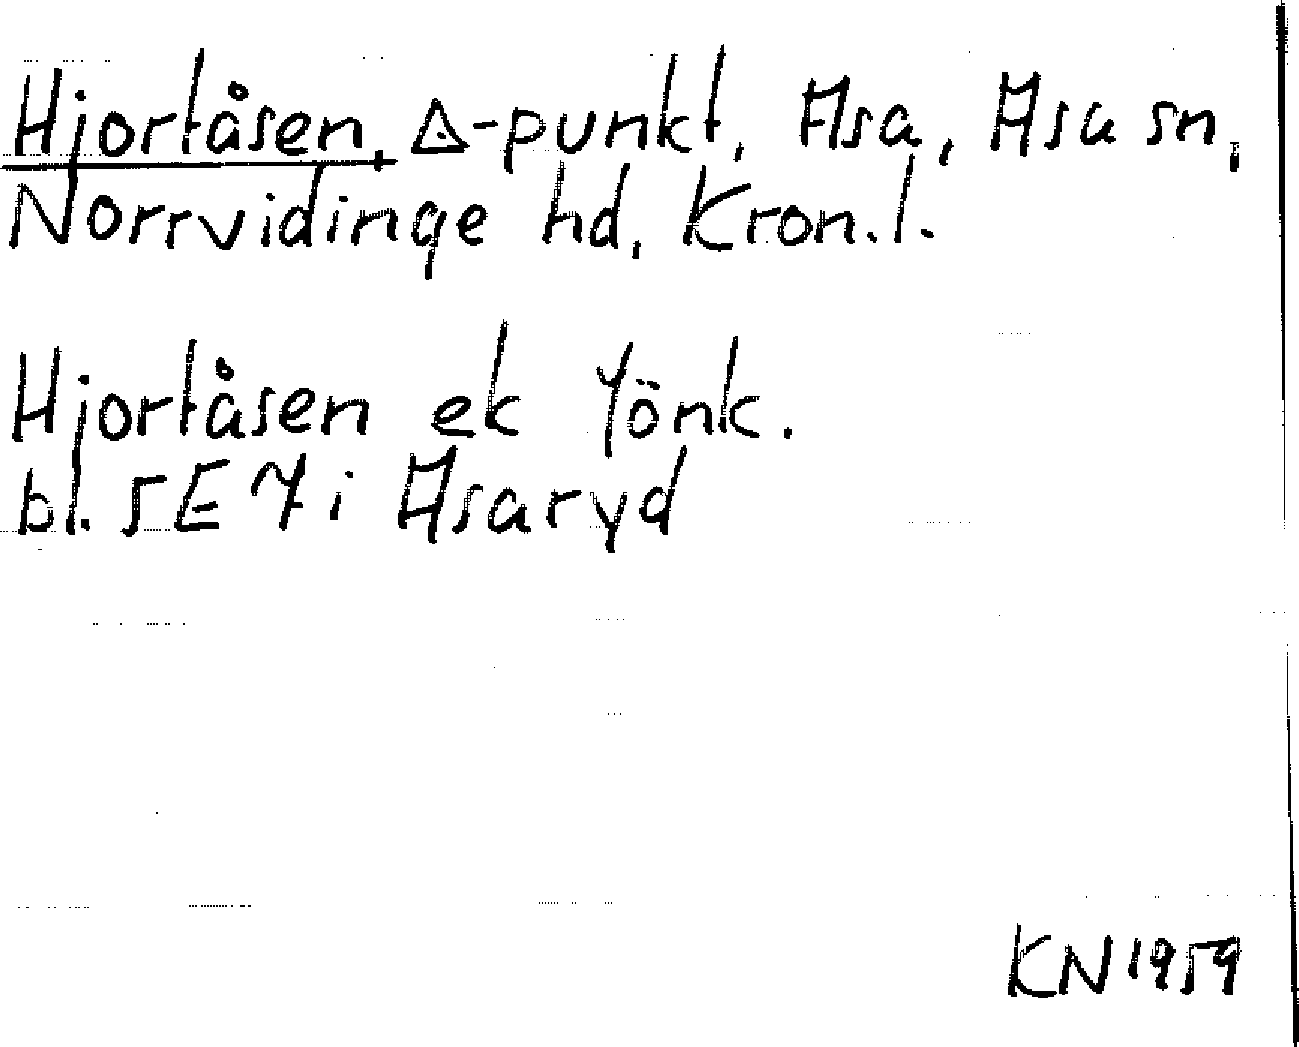 Hjortåsen, △-punkt, Asa, Asa sn,
Norrvidinge hd, Kron.l.
Hjortåsen ek Jönk.
bl. 5E 7i Asaryd
KN 1959